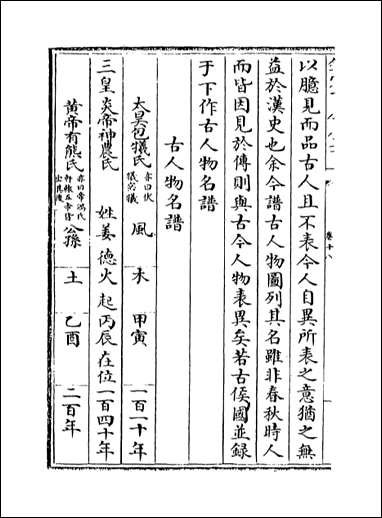 卷十八
以臆見而品古人且不表今人自異所表之意猶之無
益於漢史也余今譜古人物圖列其名雖非春秋時人
而皆因見於傳則與古今人物表異矣若古侯國並録
于下作古人物名譜
古人物名譜
太昊包犧氏 亦曰伏犧宓犧 風 木 甲寅 一百一十年
三皇炎帝神農氏 姓姜 德火 起丙辰 在位一百四十年
黄帝有熊氏 亦曰帝鴻氏軒轅 公孫 土 乙酉 二百年